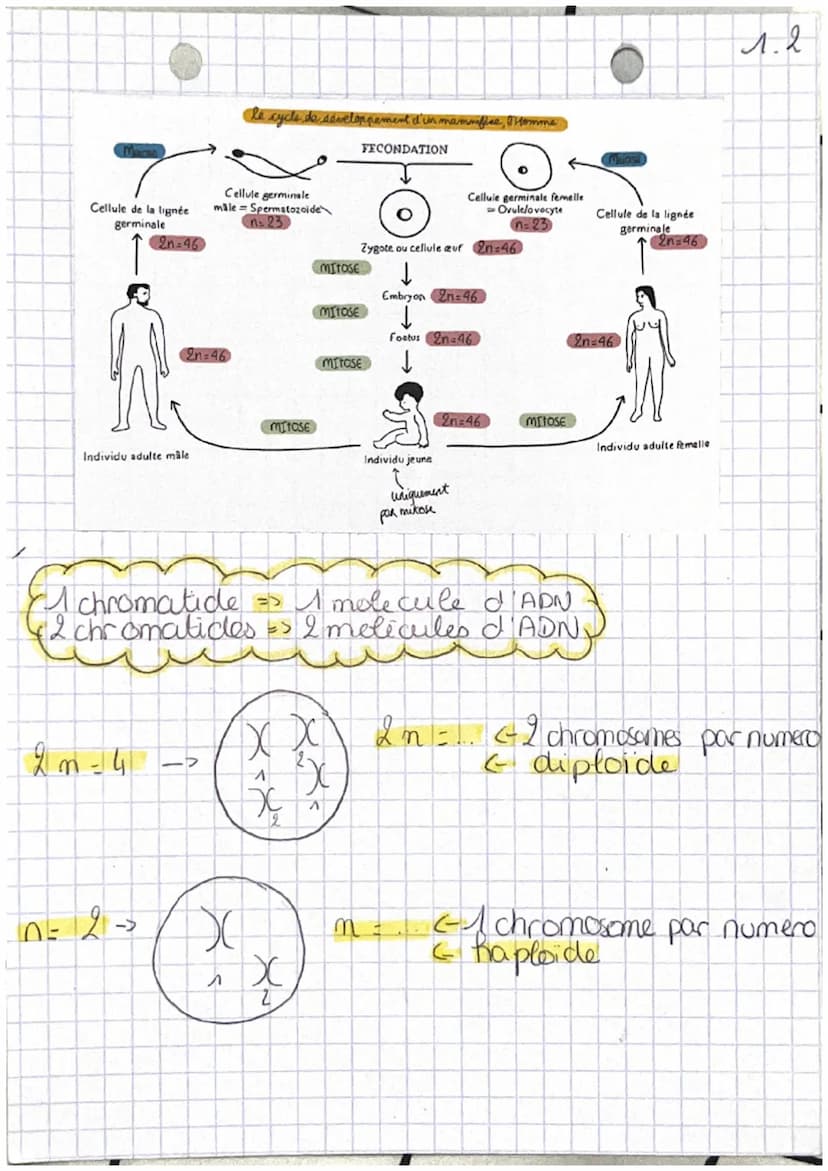 1.2
Le cycle de développement d'un mammifère, l'Homme
Meiose
FECONDATION
Meiose
Cellule germinale
mâle = Spermatozoïde
n=23
Cellule germinale femelle
= Ovule/ovocyte
n=23
Cellule de la lignée
germinale
2n=46
Cellule de la lignée
germinale
2n=46
Zygote ou cellule œuf 2n=46
MITOSE
Embryon 2n=46
MITOSE
Foetus 2n=46
2n=46
2n=46
MITOSE
MITOSE
2n=46
MITOSE
Individu adulte mâle
Individu jeune
Individu adulte femelle
uniquement
par mitose
1 chromatide => 1 molecule d'ADN
2 chromatides => 2 molécules d'ADN
2n=4 -->
1 2
2 1
2n=... <- 2 chromosomes par numero
<- diploïde
n=2 ->
1 2
n=.... <- 1 chromosome par numero
<- haploïde